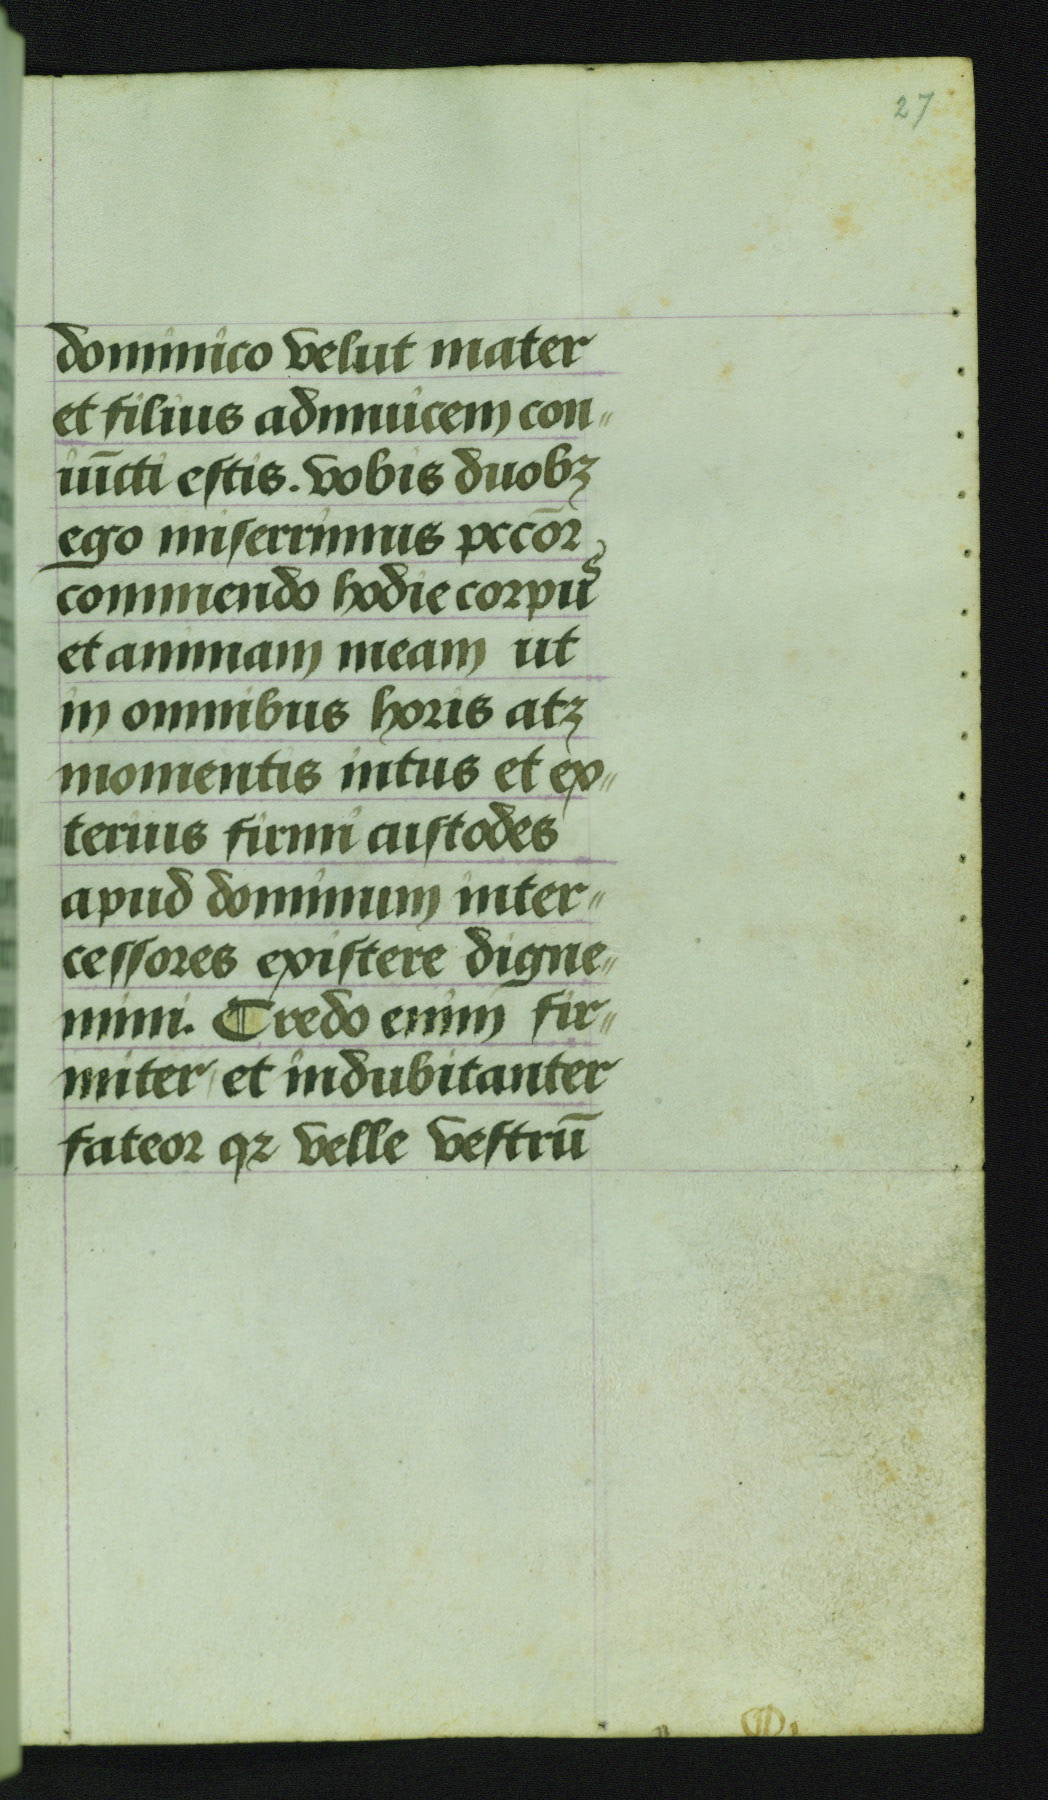 27
dominico velut mater
et filius adinuicem con〃
iūcti estis. vobis duobꝫ
ego miserrimus pccōr
commendo hodie corpus
et animam meam ut
in omnibus horis atꝫ
momentis intus et ex〃
terius firmi custodes
apud dominum inter〃
cessores existere digne〃
mini. Credo enim fir〃
miter et indubitanter
fateor qꝛ velle vestrū